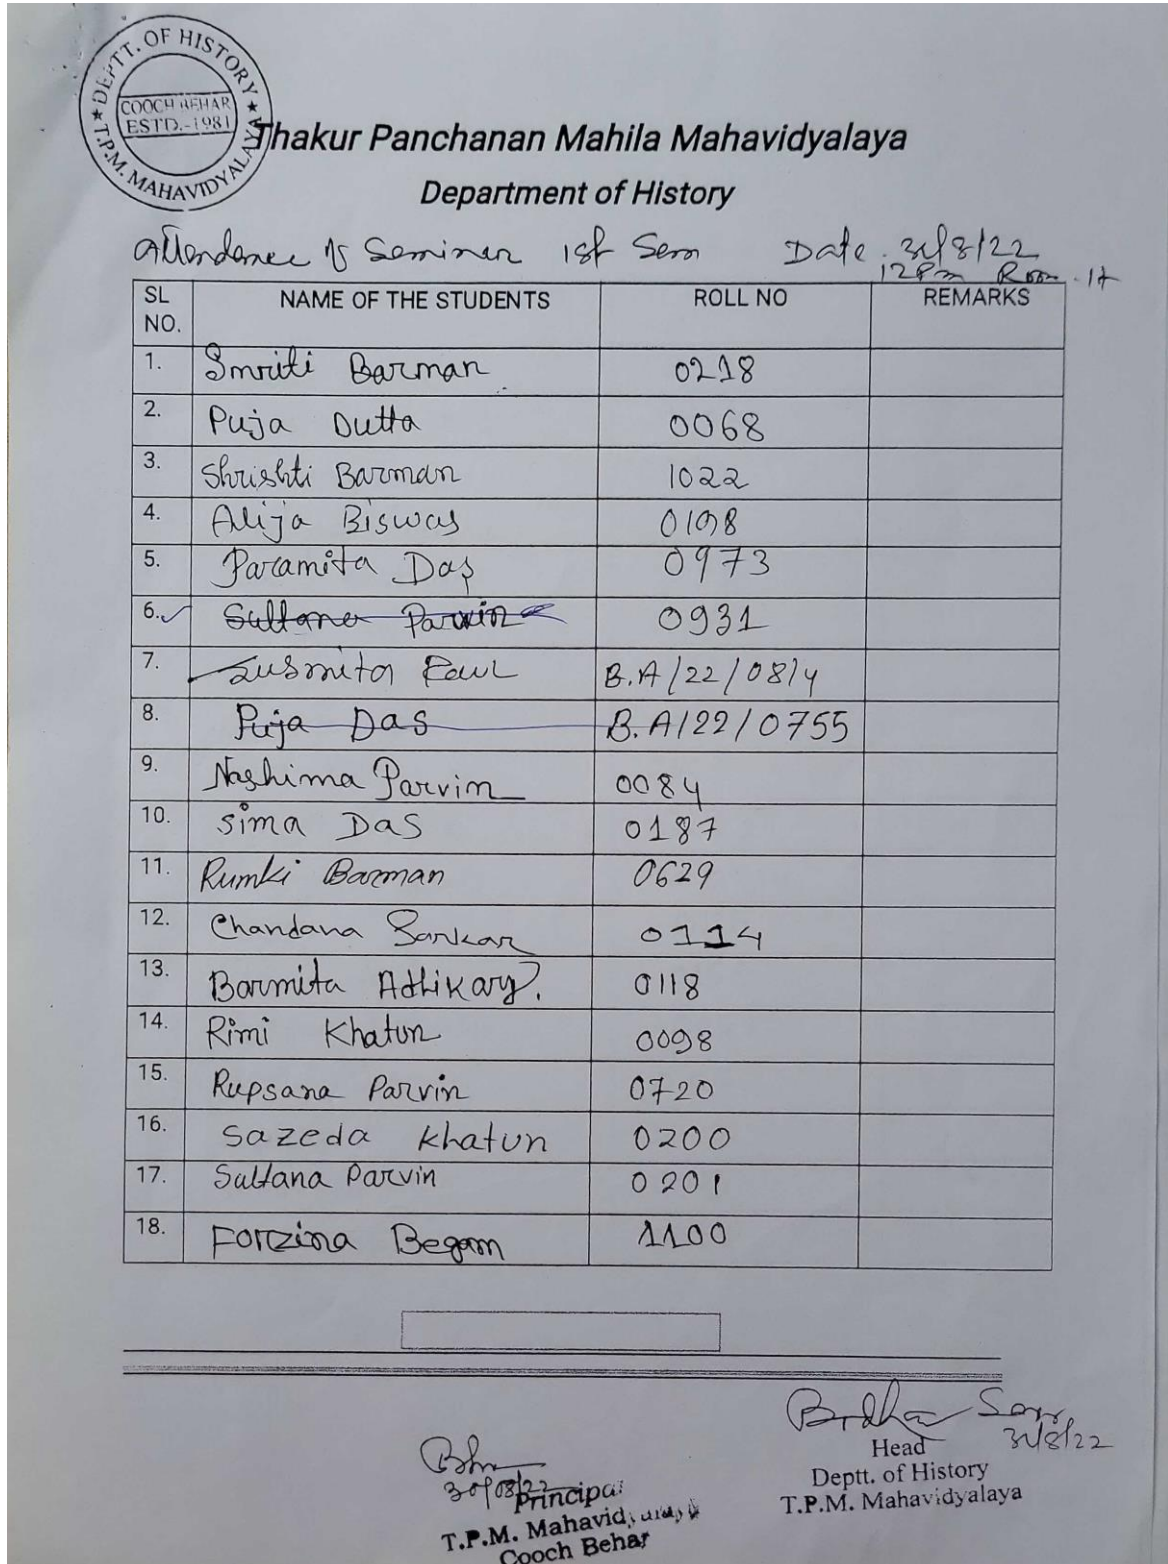 DEPTT. OF HISTORY
COOCH BEHAR
ESTD.-1981
T.P.M. MAHAVIDYALAYA
Thakur Panchanan Mahila Mahavidyalaya
Department of History
Attendence of Seminar 1st Sem Date. 31/8/22
12 Pm Room - 17
SL NO. NAME OF THE STUDENTS ROLL NO REMARKS
1. Smriti Barman 0218
2. Puja Dutta 0068
3. Shrishti Barman 1022
4. Alija Biswas 0198
5. Paramita Das 0973
6. Sultana Parvin 0931
7. Susmita B.A/22/0814
8. Puja Das B.A/22/0755
9. Nashima Parvin 0084
10. Sima Das 0187
11. Rumki Barman 0629
12. Chandana Sarkar 0114
13. Barmita Adhikary. 0118
14. Rimi Khatun 0098
15. Rupsana Parvin 0720
16. Sazeda Khatun 0200
17. Sultana Parvin 0201
18. Forzina Begam 1100
31/8/22
Head
Deptt. of History
T.P.M. Mahavidyalaya
30/08/22
Principal
T.P.M. Mahavidyalaya
Cooch Behar